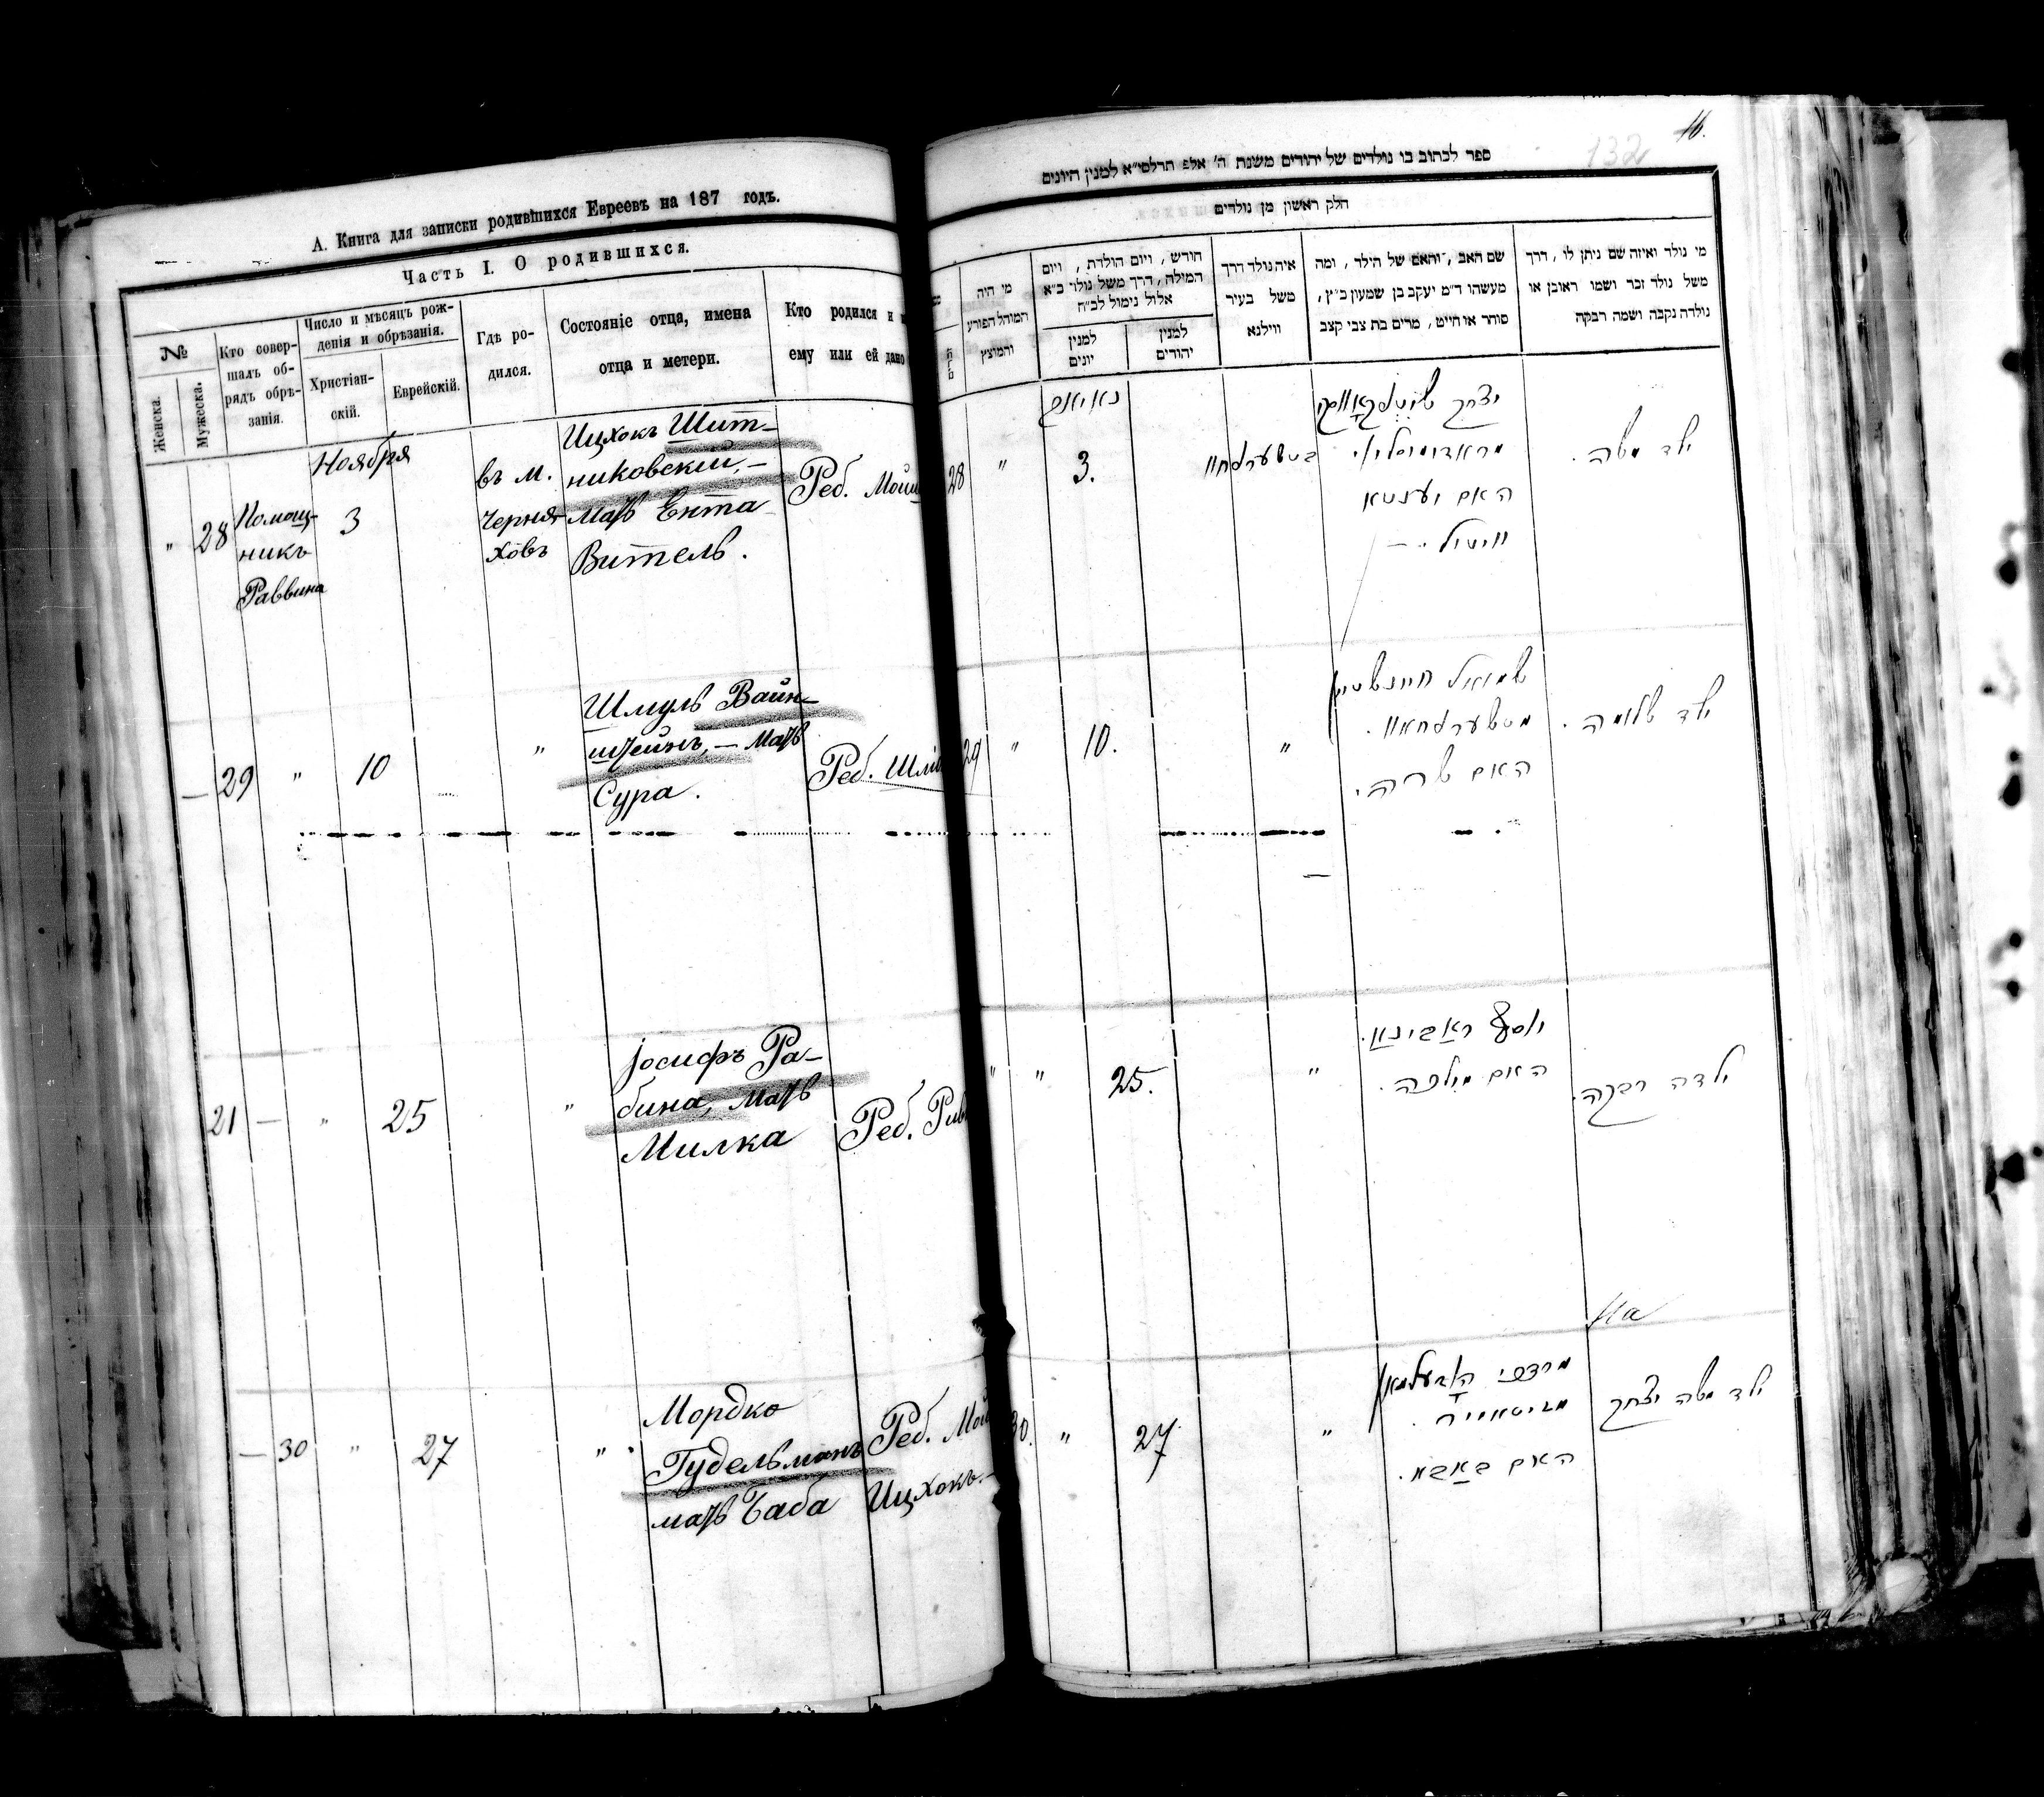 А. Книга для записки родившихся Евреевъ на 187 годъ.
Часть I. О родившихся.
№
Женска.
Мужеска.
Кто совер-
шалъ об-
рядъ обрѣ-
занія.
Число и мѣсяцъ рож-
денія и обрѣзанія.
Христіан-
скій.
Еврейскій.
Гдѣ ро-
дился.
Состояніе отца, имена
отца и метери.
Кто родился и
ему или ей дано
Ноября
" 28
Помощ-
никъ
Раввина
3
въ м.
Черня-
ховъ
Ицхокъ Шит-
никовскій, —
мать Ента
Витель.
Реб. Мош
— 29 " 10 "
Шмуль Вайн-
штейнъ, — мать
Сура.
Реб. Шл
21 — " 25 "
Іосифъ Ра-
бина, мать
Милка
Реб. Рив
— 30 " 27 "
Мордко
Гудельманъ
мать Баба
Реб. Мой
Ицхокъ. —
16.
132
ספר לכתוב בו נולדים של יהודים משנת ה' אלפ תרלסי״א למנין היונים
חלק ראשון מן נולדים
מי היה
המוהל הפורע
והמוצץ
חודש, ויום הולדת, ויום
המילה, דרך משל נולד כ״א
אלול נימול לכ״ח
למנין
יונים
למנין
יהודים
איה נולד דרך
משל בעיר
ווילנא
שם האב, והאם של הילד, ומה
מעשהו ד״מ יעקב בן שמעון כ״ץ,
סוחר או חייט, מרים בת צבי קצב
מי נולד ואיזה שם ניתן לו, דרך
משל נולד זכר ושמו ראובן או
נולדה נקבה ושמה רבקה
28 " 3.
האם יענטא
וויטיל. —
ילד משה.
29 " 10. "
שמואל וויינשטיין
האם שרה.
ילד שלומה.
" " 25. "
יוסף ראבינא.
האם מילכה.
ילדה רבקה.
30. " 27 "
האם באבא.
ילד משה יצחק